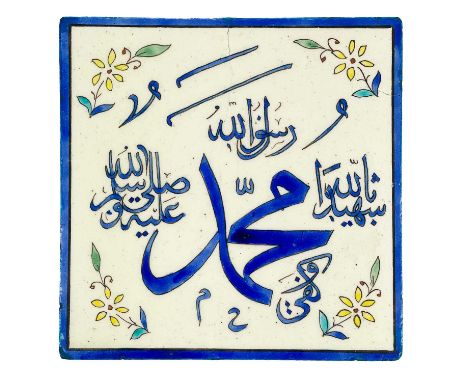 رسول الله
وكفى بالله شهيدا
محمد
صلى الله عليه وسلم